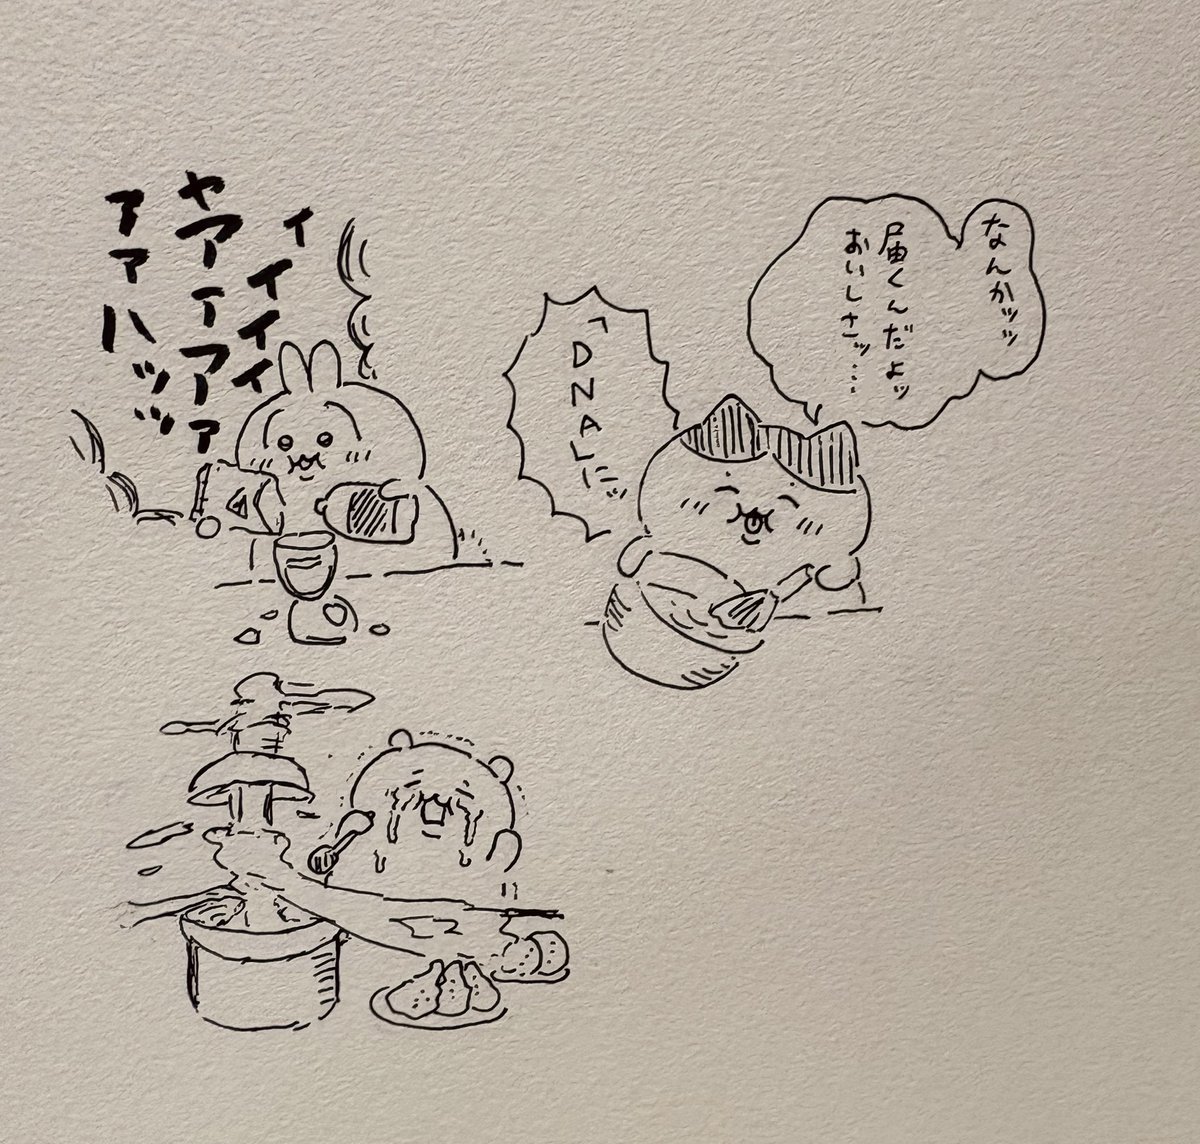 なんかッッ
届くんだよッ
おいしさッ…
「DNA」にッ
イイイイ
ヤアーアアァ
アアハッッッ